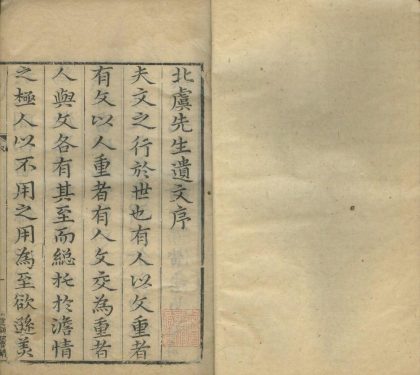 北虞先生遺文序
夫文之行於世也有人以文重者
有文以人重者有人文交為重者
人與文各有其至而總托於澹情
之極人以不用之用為至欲遜美